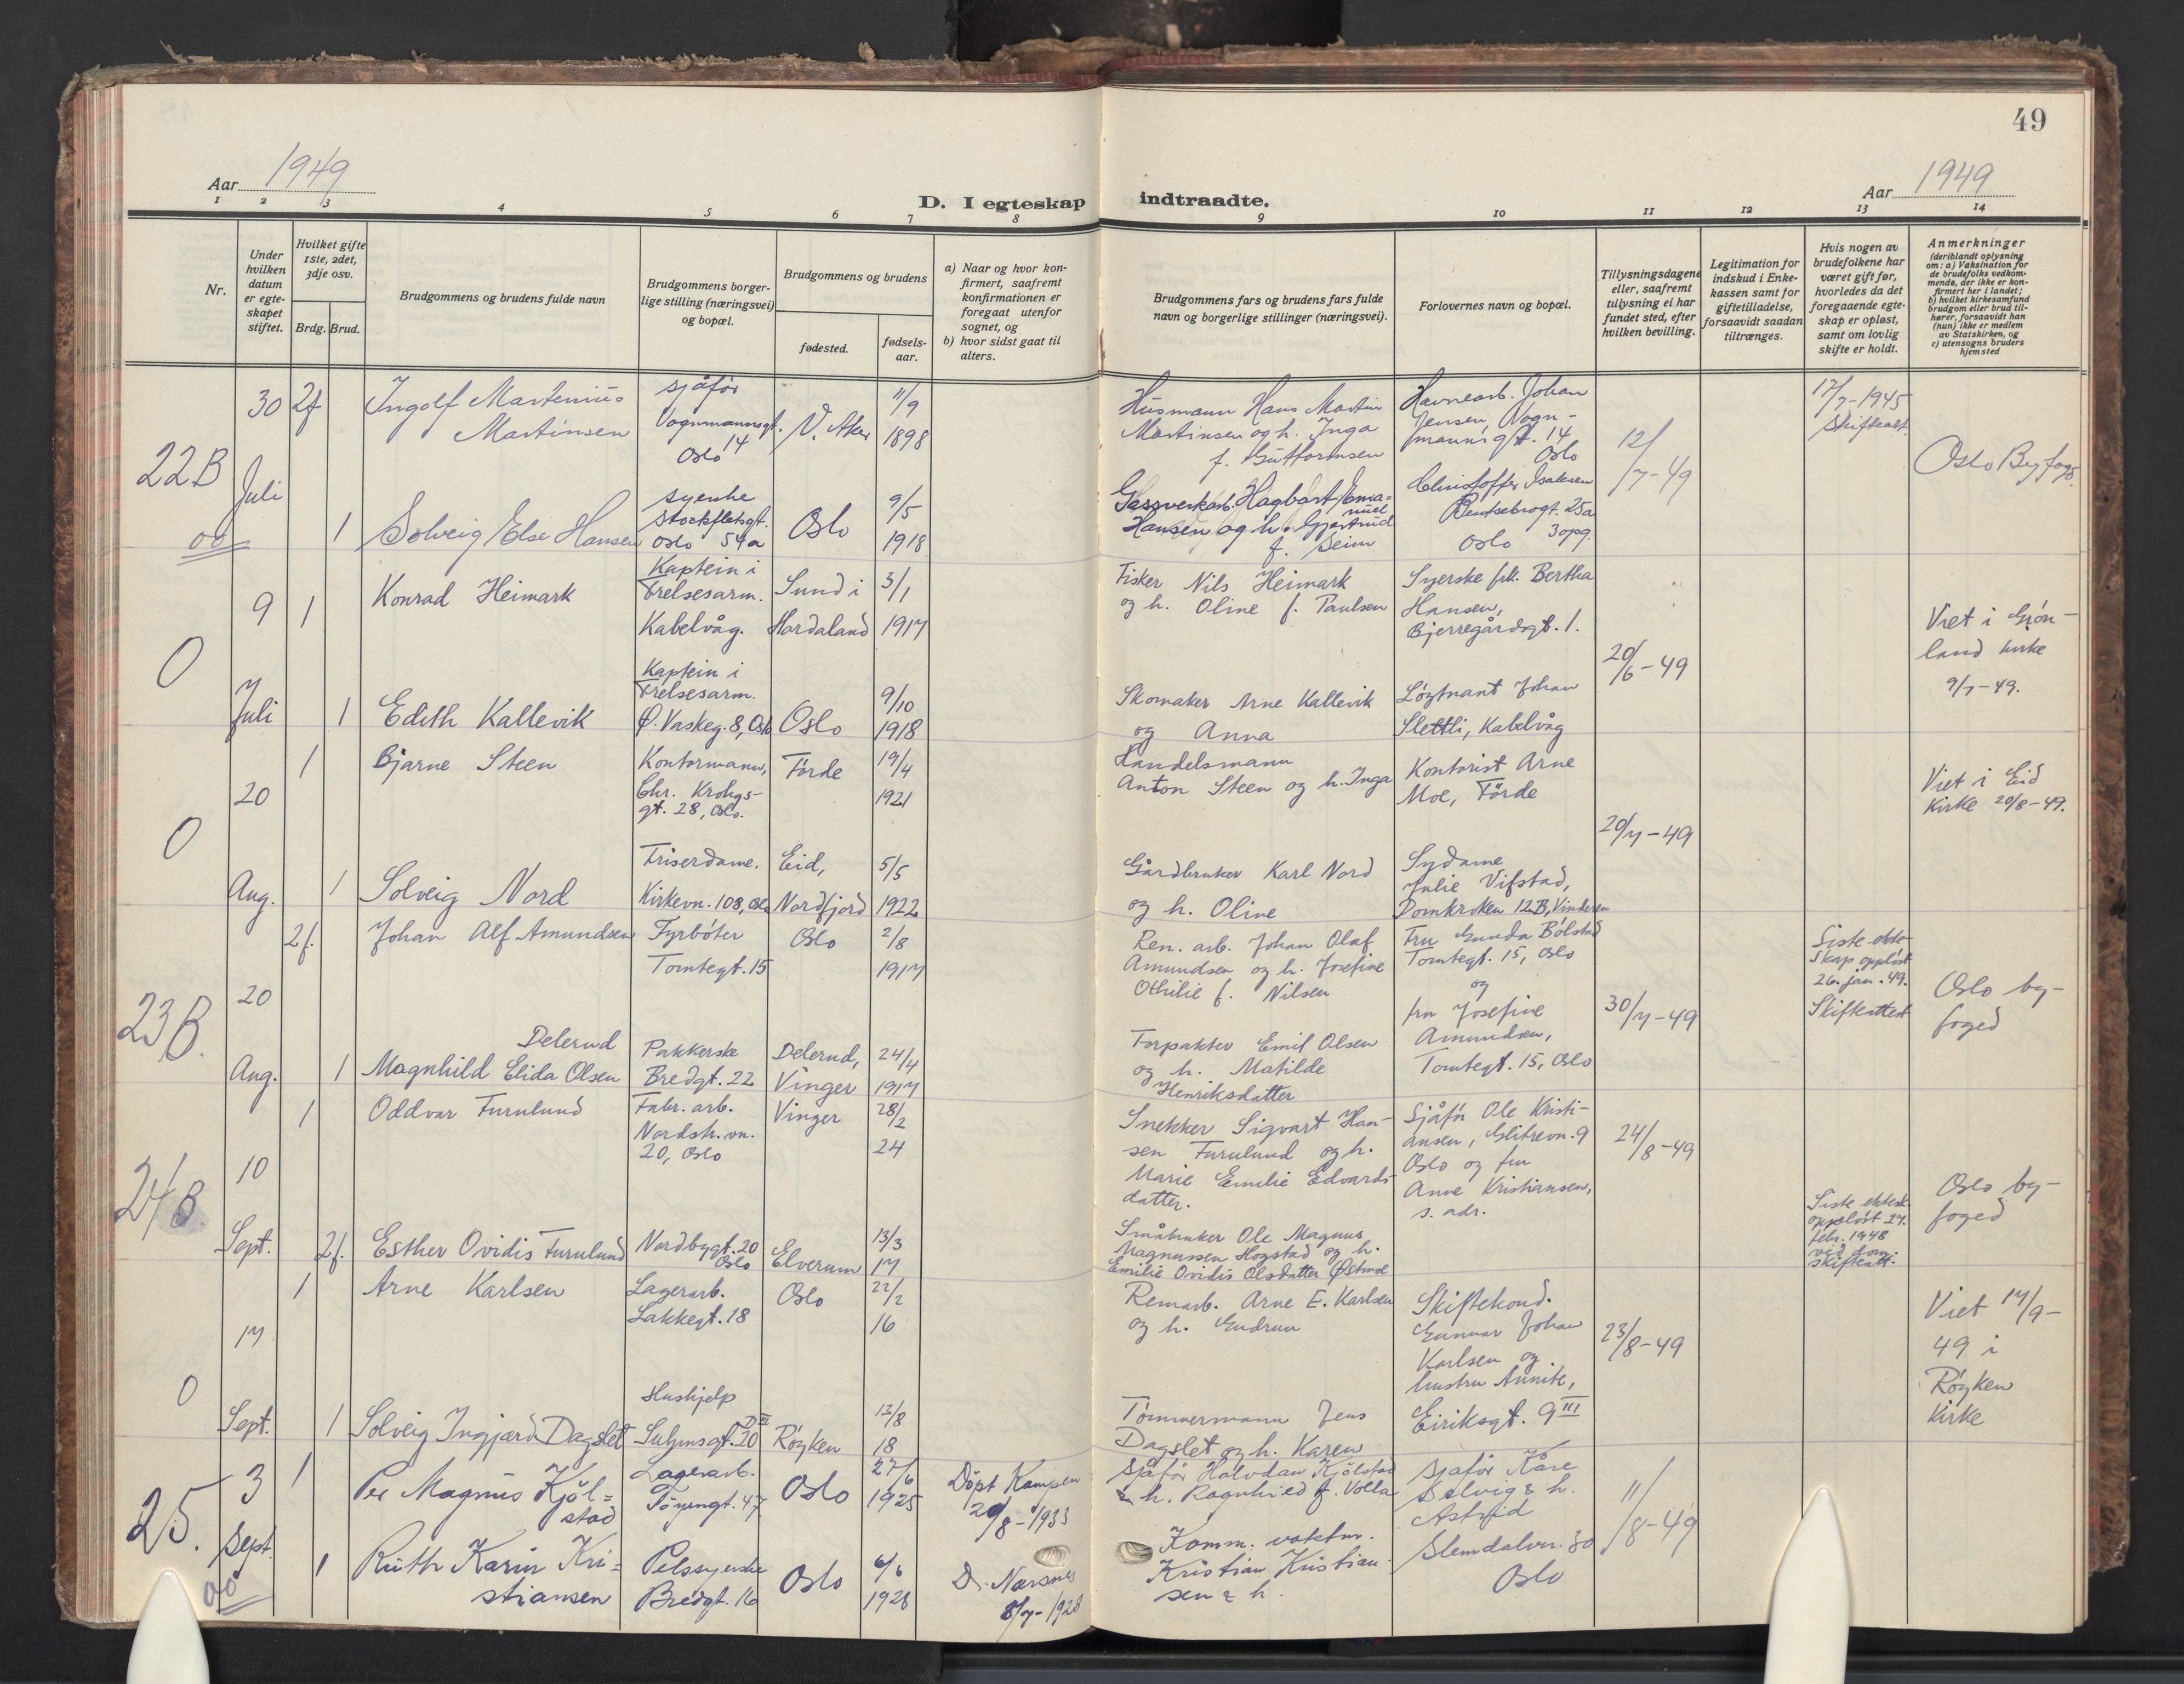 49
Aar 1949
D. I egteskap indtraadte.
Aar 1949
1 2 3 4 5 6 7 8 9 10 11 12 13 14
Nr.
Under hvilken datum er egteskapet stiftet.
Hvilket gifte 1ste, 2det, 3dje osv.
Brdg. Brud.
Brudgommens og brudens fulde navn
Brudgommens borgerlige stilling (næringsvei) og bopæl.
Brudgommens og brudens
fødested.
fødselsaar.
a) Naar og hvor konfirmert, saafremt konfirmationen er foregaat utenfor sognet, og
b) hvor sidst gaat til alters.
Brudgommens fars og brudens fars fulde navn og borgerlige stillinger (næringsvei).
Forlovernes navn og bopæl.
Tillysningsdagene eller, saafremt tillysning ei har fundet sted, efter hvilken bevilling.
Legitimation for indskud i Enkekassen samt for giftetilladelse, forsaavidt saadan tiltrænges.
Hvis nogen av brudefolkene har været gift før, hvorledes da det foregaaende egteskap er opløst, samt om lovlig skifte er holdt.
Anmerkninger (deriblandt oplysning om: a) Vaksination for de brudefolks vedkommende, der ikke er konfirmert her i landet; b) hvilket kirkesamfund brudgom eller brud tilhører, forsaavidt han (hun) ikke er medlem av Statskirken, og c) utensogns bruders hjemsted
22B
30 Juli
2f
Ingolf Martinius
Martinsen
sjåfør
Vognmannsgt.
14
Oslo
V. Aker
11/9
1898
Husmann Hans Martin
Martinsen og h. Inga
f. Guttormsen
Havnearb. Johan
Jensen, Vogn-
mannsgt. 14
Oslo
12/7-49
17/7-1945
Skifteatt.
Oslo Byfogd
1
Solveig Else Hansen
syerske
Stockfletsgt.
Oslo 54a
Oslo
9/5
1918
Gassverkarb. Hagbart Ema=
nuel
Hansen og h. Gjertrud
f. Seim
Christoffer Isaksen
Bentsebrogt. 25a
3 opg.
Oslo
0
9 Juli
1
Konrad Heimark
Kaptein i
Frelsesarm.
Kabelvåg.
Sund i
Hordaland
3/1
1917
Fisker Nils Heimark
og h. Oline f. Paulsen
Syerske frk. Bertha
Hansen,
Bjerregårdsgt. 1.
20/6-49
Viet i Grøn-
land kirke
9/7-49.
1
Edith Kallevik
Kaptein i
Frelsesarm.
Ø. Vaskeg. 8, Oslo
Oslo
9/10
1918
Skomaker Arne Kallevik
og Anna
Løytnant Johan
Slettli, Kabelvåg
0
20 Aug.
1
Bjarne Steen
Kontormann,
Chr. Krohgs-
gt. 28, Oslo.
Førde
19/4
1921
Handelsmann
Anton Steen og h. Inga
Kontorist Arne
Moe, Førde
20/7-49
Viet i Eid
Kirke 20/8-49.
1
Solveig Nord
Friserdame.
Kirkevn. 108, Oslo
Eid,
Nordfjord
5/5
1922
Gårdbruker Karl Nord
og h. Oline
Sydame
Julie Vifstad,
Domkroken 12B, Vinderen
23B.
20 Aug.
2f.
Johan Alf Amundsen
Fyrbøter
Tomtegt. 15
Oslo
2/8
1917
Ren. arb. Johan Olaf
Amundsen og h. Josefine
Othilie f. Nilsen
Fru Gunda Bølstad
Tomtegt. 15, Oslo
og
fru Josefine
Amundsen,
Tomtegt. 15, Oslo
30/7-49
Siste ekte-
skap oppløst
26. jan. 49.
Skifteattest
Oslo by-
foged
1
Delerud
Magnhild Elida Olsen
Pakkerske
Bredgt. 22
Delerud,
Vinger
24/4
1917
Forpakter Emil Olsen
og h. Matilde
Henriksdatter
24B.
10 Sept.
1
Oddvar Furulund
Fabr. arb.
Nordstr. vn.
20, Oslo
Vinger
28/2
24
Snekker Sigvart Han-
sen Furulund og h.
Marie Emilie Edvards-
datter.
Sjåfør Ole Kristi-
ansen, Glitrevn. 9
Oslo og fru
Anne Kristiansen,
s. adr.
24/8-49
Oslo by-
foged
2f.
Esther Ovidis Furulund
Nordbygt. 20
Oslo
Elverum
13/3
17
Småbruker Ole Magnus
Magnussen Hogstad og h.
Emilie Ovidis Olsdatter
Siste ektesk.
oppløst 27.
febr. 1948
ved dom.
skifteatt.
0
17 Sept.
1
Arne Karlsen
Lagerarb.
Lakkegt. 18
Oslo
22/2
16
Remarb. Arne E. Karlsen
og h. Gudrun
Gunnar Johan
Karlsen og
hustru Annite,
Eiriksgt. 9 III
23/8-49
Viet 17/9-
49 i
Røyken
Kirke
1
Solveig Ingjerd Dagslet
Hushjelp
Suhmsgt. 20
Røyken
13/8
18
Tømmermann Jens
Dagslet og h. Karen
25.
3 Sept.
1
Per Magnus Kjøl=
stad
Lagerarb.
Tøyengt. 47
Oslo
27/6
1925
Døpt Kampen
20/8-1933
Sjåfør Halvdan Kjølstad
& h. Ragnhild f. Volla
Sjåfør Kåre
Solvig & h.
Astrid
Slemdalvn. 30
Oslo
11/8-49
1
Ruth Karin Kri=
stiansen
Pelssyerske
Bredgt. 16
Oslo
6/6
1928
D. Nærsnes
8/7-1928
Komm. vaktm.
Kristian Kristian-
sen & h.